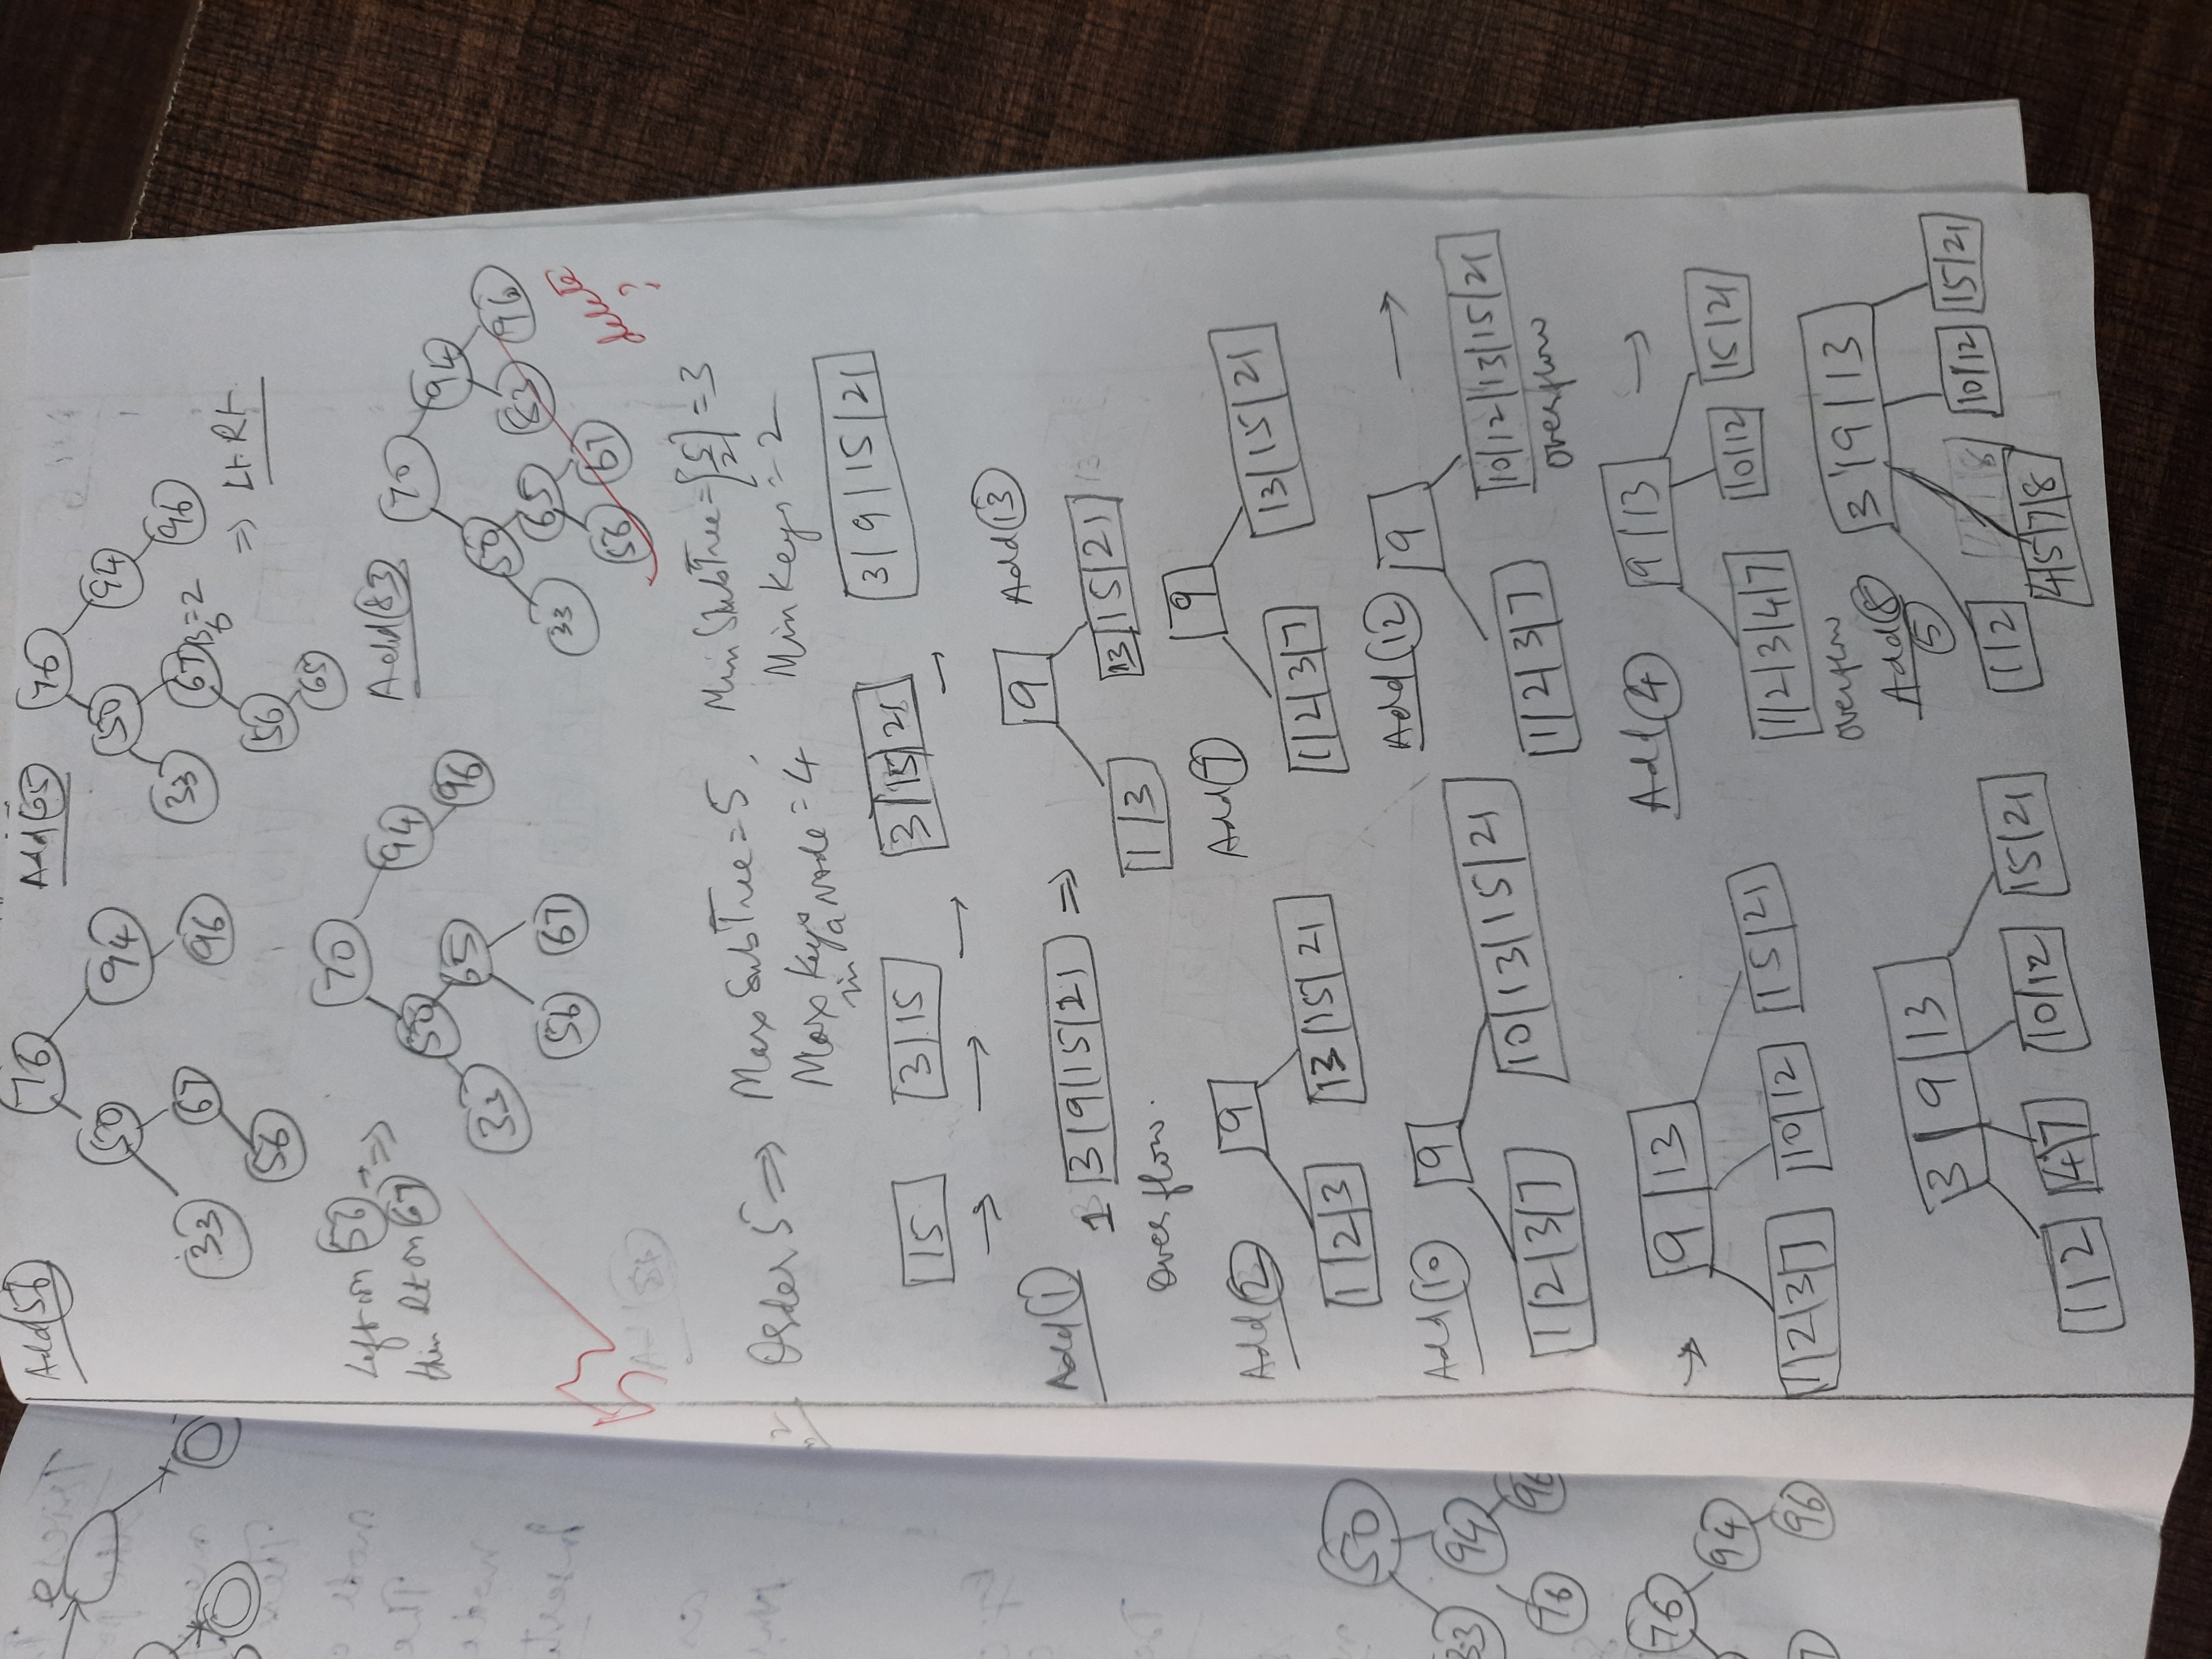 Add 56
76
50 94
33 67 96
56
Add 65
76
50 94
33 67 Bf=2 96
56
65
=> Lt. Rt.
Left on 56 =>
then Rt on 67
70
50 94
33 65 96
56 67
Add 83
70
50 94
33 65 83 96
56 67
delete
?
Order 5 => Max SubTree = 5, Min SubTree = ⌈5/2⌉ = 3
Max Keys in a Node = 4 Min Keys = 2
15 → 3|15 → 3|15|21 → 3|9|15|21
Add 1
1 3|9|15|21 =>
Overflow.
9 Add 13
1|3 13|15|21
Add 2
9
1|2|3 13|15|21
Add 7
9
1|2|3|7 13|15|21
Add 10
9
1|2|3|7 10|13|15|21
Add 12
9 →
1|2|3|7 10|12|13|15|21
overflow
→ 9|13
1|2|3|7 10|12 15|21
Add 4
9|13 →
1|2|3|4|7 10|12 15|21
overflow
3|9|13
1|2 4|7 10|12 15|21
Add 8
5
3|9|13
1|2 4|5|7|8 10|12 15|21
50
33 94
76 96
76
94
96